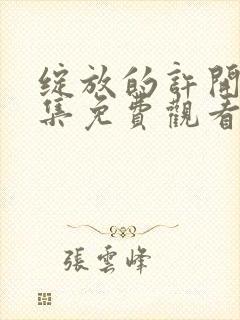 綻放的許開
集免費觀看
張雲峰